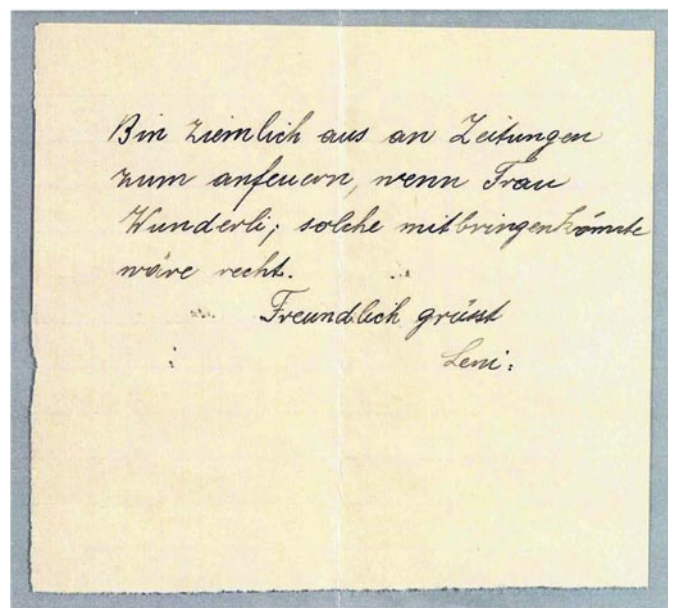 Bin ziemlich aus an Zeitungen
zum anfeuern, wenn Frau
Wunderli; solche mitbringen könnte
wäre recht.
Freundlich grüsst
Leni: